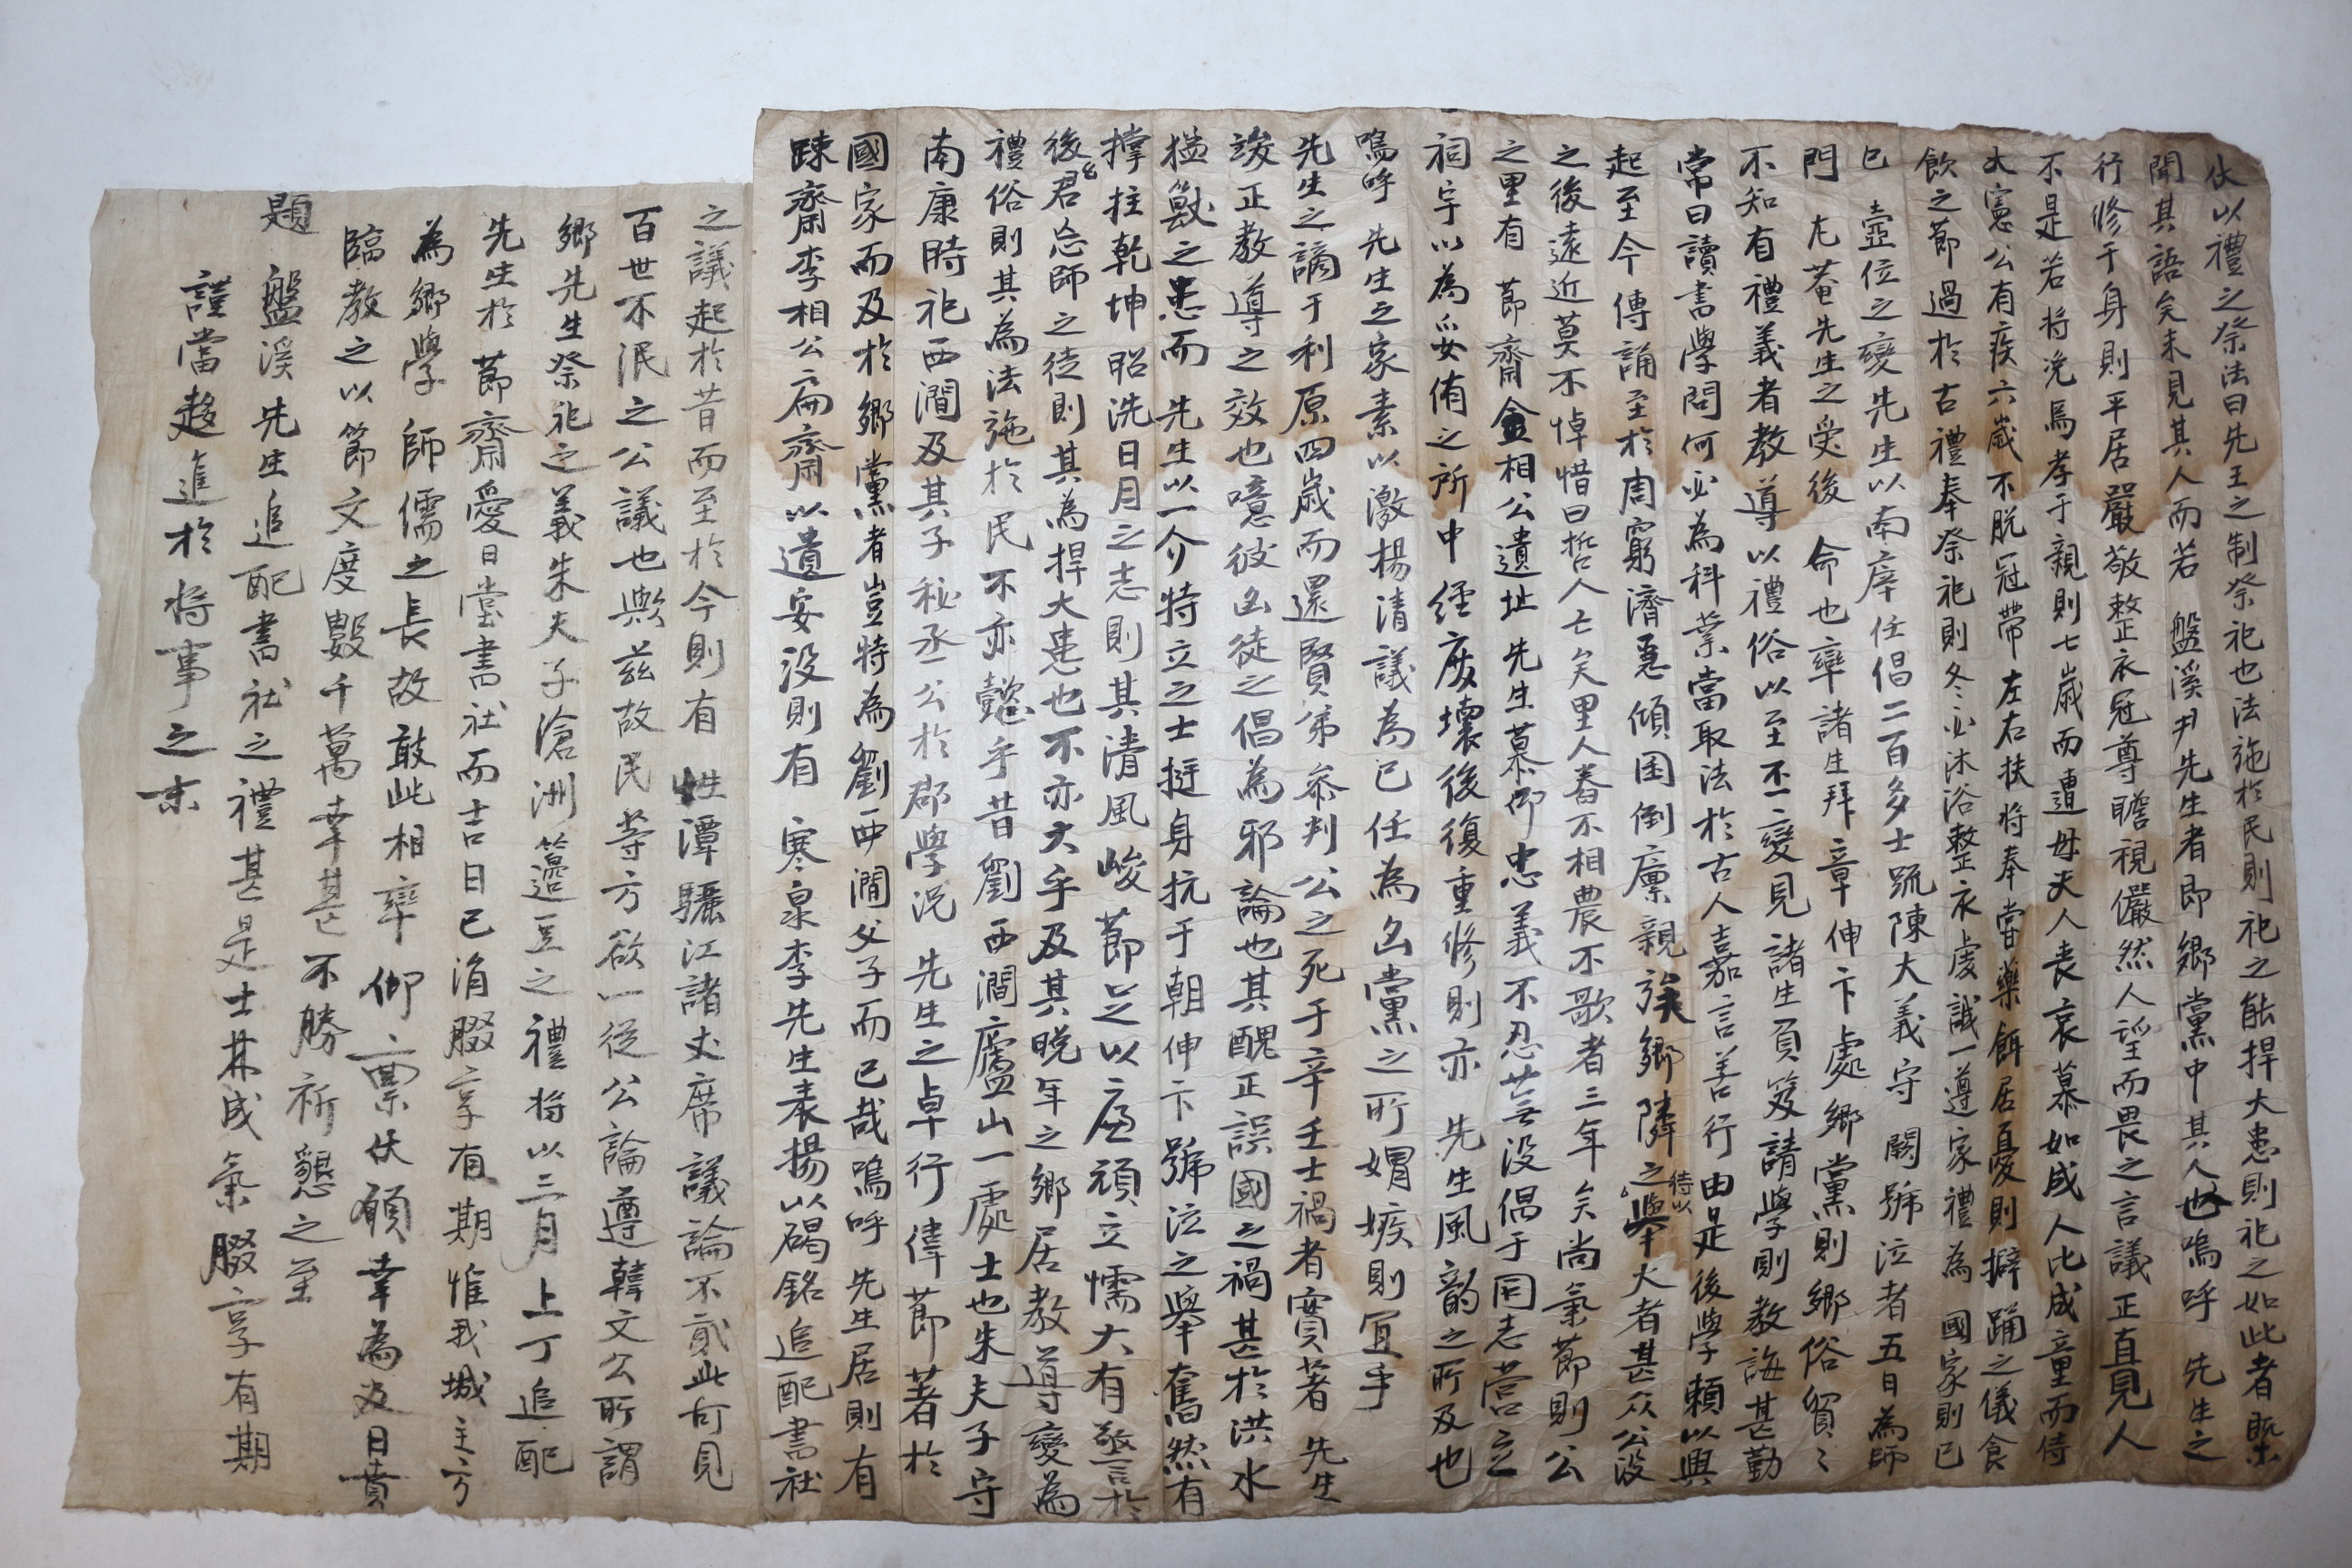 伏以禮之祭法曰先王之制祭祀也法施於民則祀之能捍大患則祀之如此者槩
聞其語矣未見其人而若 盤溪尹先生者即鄕黨中其人也嗚呼 先生之
行修于身則平居嚴敬整衣冠尊瞻視儼然人望而畏之言議正直見人
不是若將浼焉孝于親則七歲而遭母夫人喪哀慕如成人比成童而侍
大憲公有疾六歲不脫冠帶左右扶將奉甞藥餌居憂則擗踊之儀食
飮之節過於古禮奉祭祀則冬必沐浴整衣虔誠一遵家禮爲 國家則已
已 壼位之變先生以南庠任倡二百多士䟽陳大義守 闕號泣者五日爲師
門 尤菴先生之受後 命也率諸生拜章伸卞處鄕黨則鄕俗貿〻
不知有禮義者教導以禮俗以至丕變見諸生負笈請學則教誨甚勤
常曰讀書學問何必爲科業當取法於古人嘉言善行由是後學賴以興
起至今傳誦至於周窮濟急傾囷倒廩親族鄕隣之待以擧火者甚众公沒
之後遠近莫不悼惜曰哲人亡矣里人舂不相農不歌者三年矣尚氣節則公
之里有 節齋金相公遺址先生慕仰忠義不忍芜没倡于同志營立
祠宇以爲妥侑之所中經廢壞後復重修則亦 先生風韵之所及也
嗚呼 先生之家素以激揚清議爲已任爲凶黨之所媢嫉則冝乎
先生之謫于利原四歲而還賢弟叅判公之死于辛壬士禍者實著 先生
竣正教導之效也噫彼凶徒之倡爲邪論也其醜正誤國之禍甚於洪水
猛獸之患而 先生以一介特立之士挺身抗于朝伸卞號泣之擧奮然有
撑拄乾坤昭洗日月之志則其清風峻節足以㢘頑立懦大有警於
後君忘師之徒則其爲捍大患也不亦大乎及其晩年之鄕居教導變爲
禮俗則其爲法施於民不亦懿乎昔劉西澗廬山一處士也朱夫子守
南康時祀西澗及其子秘丞公於郡學况 先生之卓行偉節著於
國家而及於鄕黨者豈特爲劉西澗父子而已哉嗚呼 先生居則有
踈齋李相公扁齋以遺安没則有 寒泉李先生表揚以碣銘追配書社
之議起於昔而至於今則有 性潭驪江諸丈席議論不貳此可見
百世不泯之公議也歟兹故民等方欲一從公論遵韓文公所謂
鄕先生祭祀之義朱夫子滄洲籩豆之禮將以三月上丁追配
先生於 節齋愛日堂書社而吉日已涓腏享有期惟我城主方
爲鄕學師儒之長故敢此相率仰禀伏願幸爲及日賁
臨教之以節文度數千萬幸甚不勝祈懇之至
題 盤溪先生追配書社之禮甚是士林成氣腏享有期
謹當趍進於將事之末